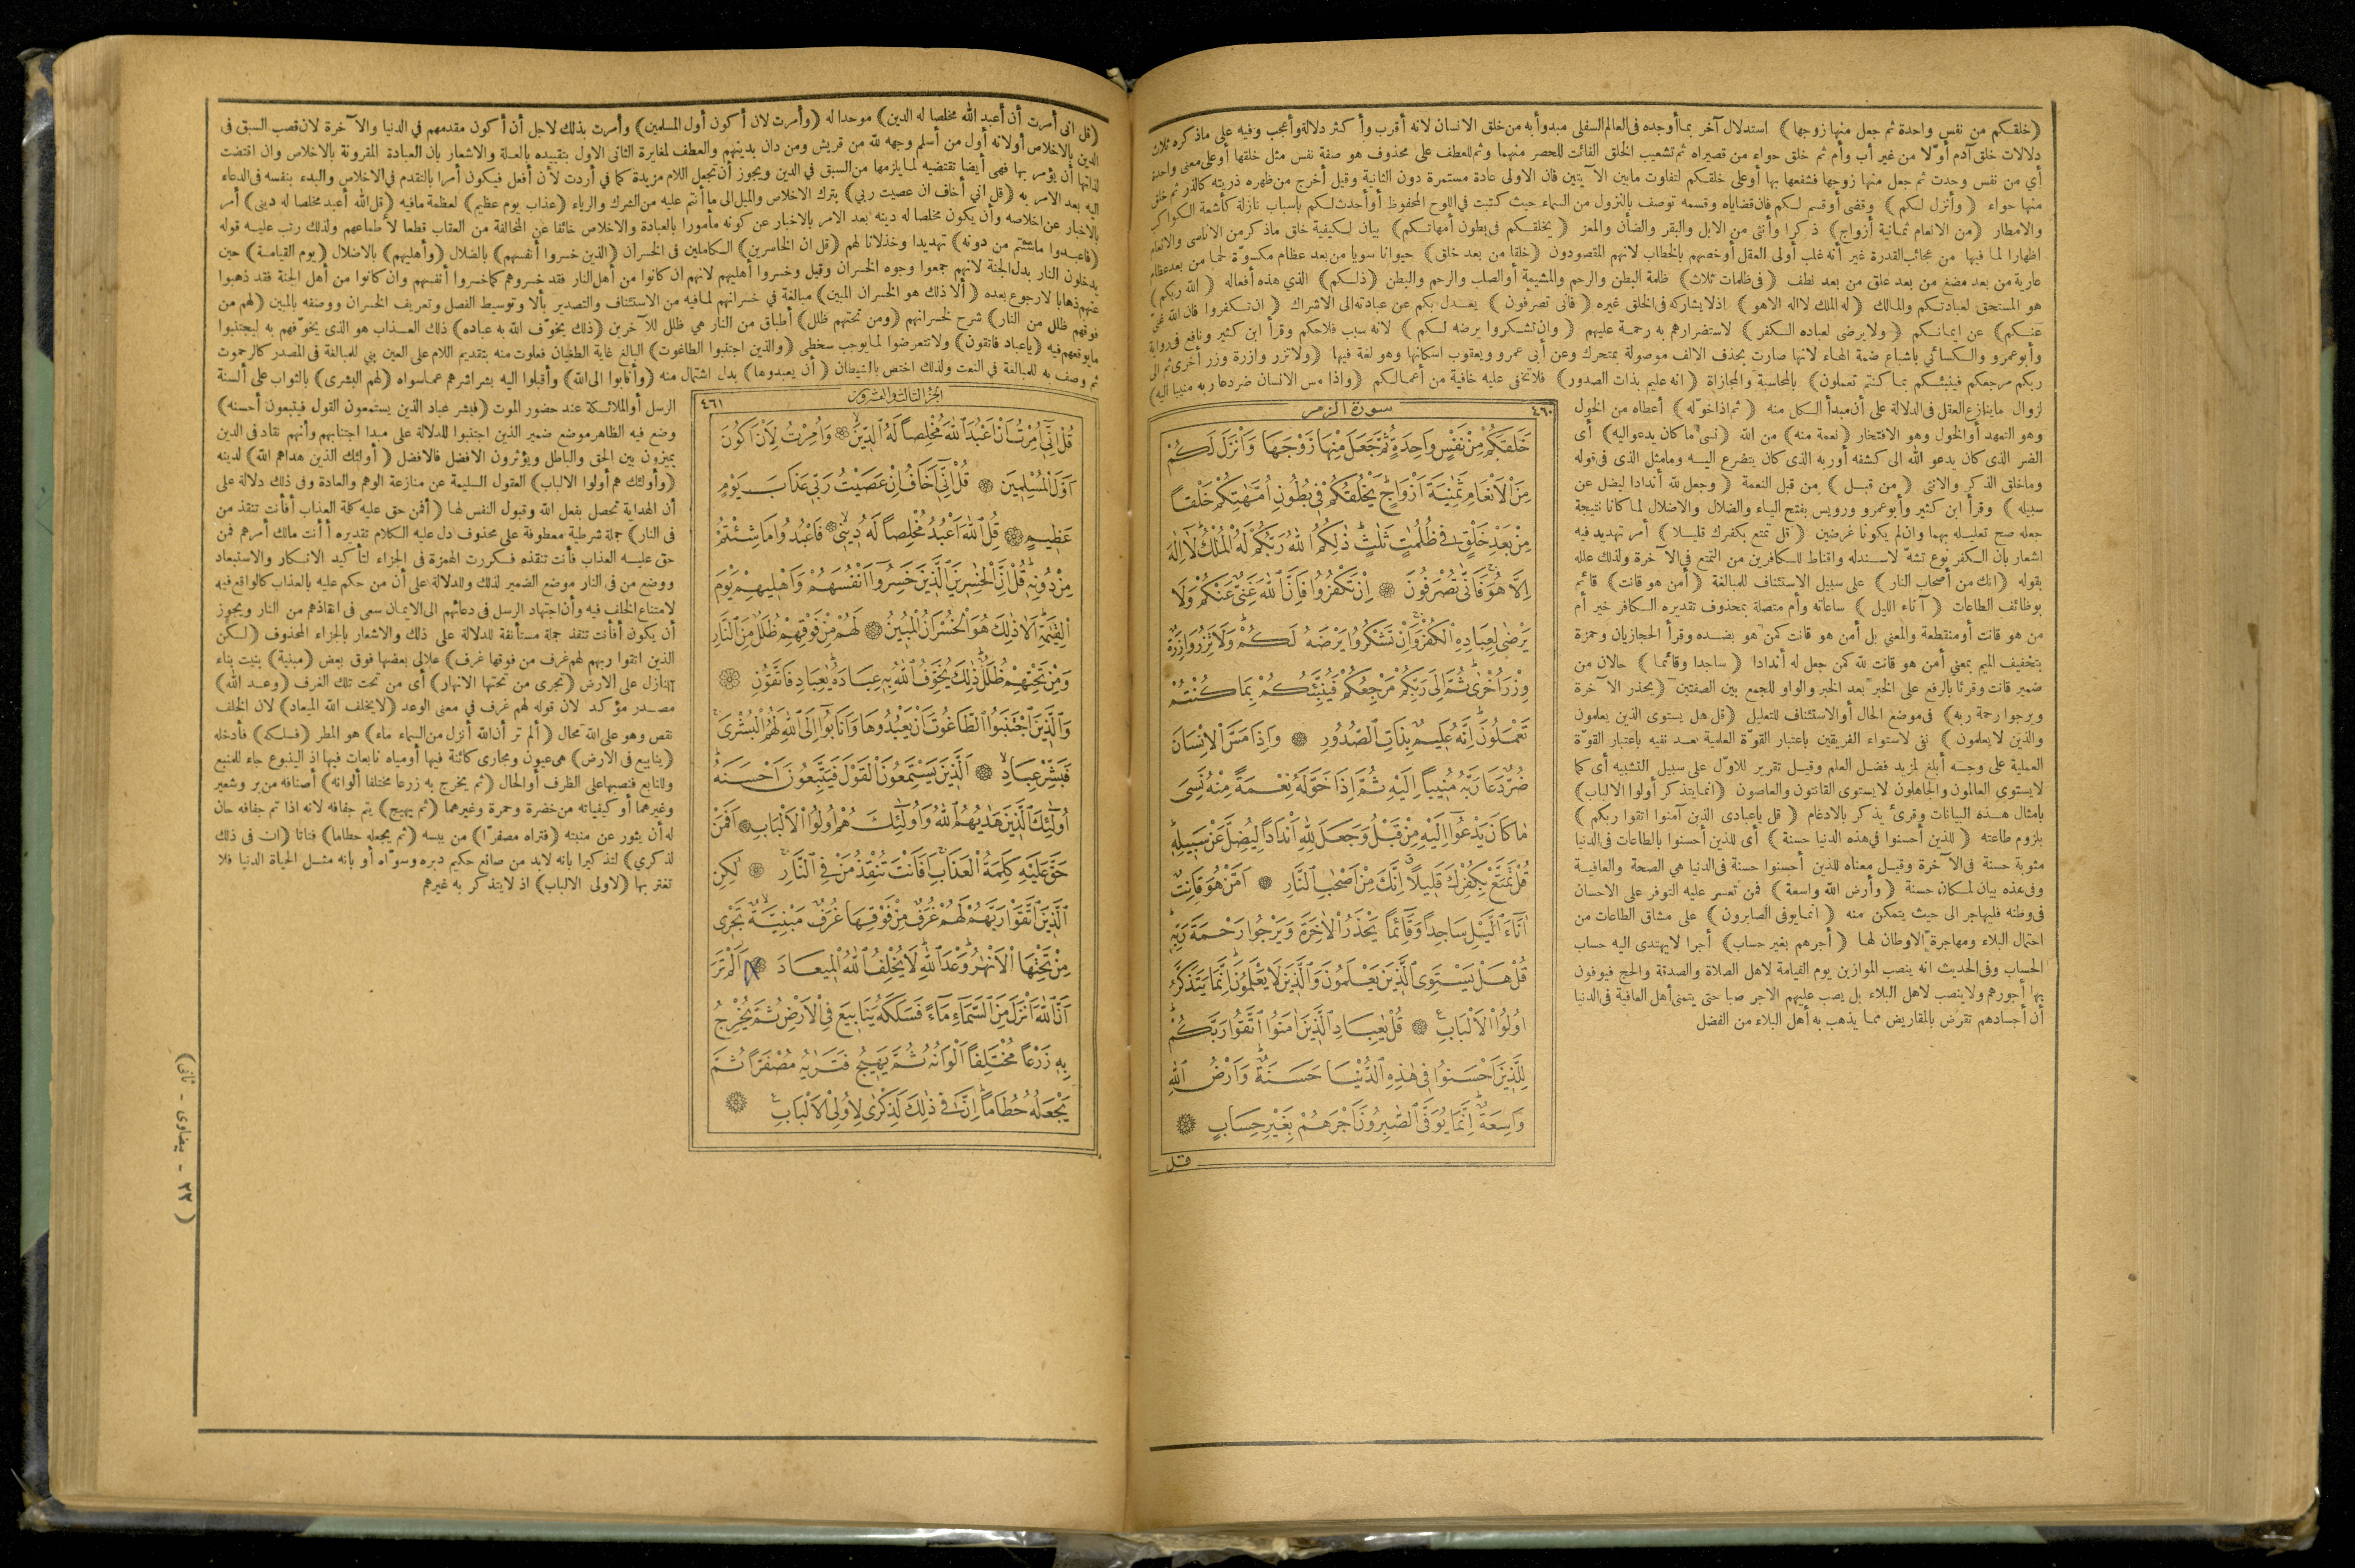 (خلقكم من نفس واحدة ثم جعل منها زوجها) استدلال آخر بما أوجده فى العالم السفلى مبدوأ به من خلق الانسان لانه أقرب وأكثر دلالة وأعجب وفيه على ماذكره ثلاث
دلالات خلق آدم أوّلا من غير أب وأم ثم خلق حواء من قصيراه ثم تشعيب الخلق الفائت للحصر منهما وثم للعطف على محذوف هو صفة نفس مثل خلقها أو على معنى واحدة
أى من نفس وحدت ثم جعل منها زوجها فشفعها بها أو على خلقكم لتفاوت مابين الآيتين فان الاولى عادة مستمرة دون الثانية وقيل أخرج من ظهره ذريته كالذر ثم خلق
منها حواء (وأنزل لكم) وقضى أو قسم لكم فان قضاياه وقسمه توصف بالنزول من السماء حيث كتبت فى اللوح المحفوظ أو أحدث لكم بأسباب نازلة كأشعة الكواكب
والامطار (من الانعام ثمانية أزواج) ذكرا وأنثى من الابل والبقر والضأن والمعز (يخلقكم فى بطون أمهاتكم) بيان لكيفية خلق ماذكر من الاناسى والانعام
اظهارا لما فيها من عجائب القدرة غير أنه غلب أولى العقل أو خصهم بالخطاب لانهم المقصودون (خلقا من بعد خلق) حيوانا سويا من بعد عظام مكسوّة لحما من بعد عظام
عارية من بعد مضغ من بعد علق من بعد نطف (فى ظلمات ثلاث) ظلمة البطن والرحم والمشيمة أو الصلب والرحم والبطن (ذلكم) الذى هذه أفعاله (الله ربكم)
هو المستحق لعبادتكم والمالك (له الملك لا اله الا هو) اذ لا يشاركه فى الخلق غيره (فأنى تصرفون) يعدل بكم عن عبادته الى الاشراك (ان تكفروا فان الله غنىّ
عنكم) عن ايمانكم (ولا يرضى لعباده الكفر) لاستضرارهم به رحمة عليهم (وان تشكروا يرضه لكم) لانه سبب فلاحكم وقرأ ابن كثير ونافع فى رواية
وأبو عمرو والكسائي باشباع ضمة الهاء لانها صارت بحذف الالف موصولة بمتحرك وعن أبى عمرو ويعقوب اسكانها وهو لغة فيها (ولا تزر وازرة وزر أخرى ثم الى
ربكم مرجعكم فينبئكم بما كنتم تعملون) بالمحاسبة والمجازاة (انه عليم بذات الصدور) فلا تخفى عليه خافية من أعمالكم (واذا مس الانسان ضر دعا ربه منيبا اليه)
لزوال ماينازع العقل فى الدلالة على أن مبدأ الكل منه (ثم اذا خوّله) أعطاه من الخول
وهو التعهد أو الخول وهو الافتخار (نعمة منه) من الله (نسى ما كان يدعو اليه) أى
الضر الذى كان يدعو الله الى كشفه أو ربه الذى كان يتضرع اليه ومامثل الذى فى قوله
وماخلق الذكر والانثى (من قبل) من قبل النعمة (وجعل لله أندادا ليضل عن
سبيله) وقرأ ابن كثير وأبو عمرو ورويس بفتح الياء والضلال والاضلال لما كانا نتيجة
جعله صح تعليله بهما وان لم يكونا غرضين (قل تمتع بكفرك قليلا) أمر تهديد فيه
اشعار بأن الكفر نوع تشهّ لا سند له واقناط للكافرين من التمتع فى الآخرة ولذلك علله
بقوله (انك من أصحاب النار) على سبيل الاستئناف للمبالغة (أمن هو قانت) قائم
بوظائف الطاعات (آناء الليل) ساعاته وأم متصلة بمحذوف تقديره الكافر خير أم
من هو قانت أو منقطعة والمعنى بل أمن هو قانت كمن هو بضده وقرأ الحجازيان وحمزة
بتخفيف الميم بمعنى أمن هو قانت لله كمن جعل له أندادا (ساجدا وقائما) حالان من
ضمير قانت وقرئا بالرفع على الخبر بعد الخبر والواو للجمع بين الصفتين (يحذر الآخرة
ويرجوا رحمة ربه) فى موضع الحال أو الاستئناف للتعليل (قل هل يستوى الذين يعلمون
والذين لا يعلمون) نفى لاستواء الفريقين باعتبار القوّة العلمية بعد نفيه باعتبار القوّة
العملية على وجه أبلغ لمزيد فضل العلم وقيل تقرير للاوّل على سبيل التشبيه أى كما
لا يستوى العالمون والجاهلون لا يستوى القانتون والعاصون (انما يتذكر أولوا الالباب)
بأمثال هذه البيانات وقرئ يذكر بالادغام (قل يا عبادى الذين آمنوا اتقوا ربكم)
بلزوم طاعته (للذين أحسنوا فى هذه الدنيا حسنة) أى للذين أحسنوا بالطاعات فى الدنيا
مثوبة حسنة فى الآخرة وقيل معناه للذين أحسنوا حسنة فى الدنيا هي الصحة والعافية
وفى هذه بيان لمكان حسنة (وأرض الله واسعة) فمن تعسر عليه التوفر على الاحسان
فى وطنه فليهاجر الى حيث يتمكن منه (انما يوفى الصابرون) على مشاق الطاعات من
احتمال البلاء ومهاجرة الاوطان لها (أجرهم بغير حساب) أجرا لا يهتدى اليه حساب
الحساب وفى الحديث انه ينصب الموازين يوم القيامة لاهل الصلاة والصدقة والحج فيوفون
بها أجورهم ولا ينصب لاهل البلاء بل يصب عليهم الاجر صبا حتى يتمنى أهل العافية فى الدنيا
أن أجسادهم تقرض بالمقاريض مما يذهب به أهل البلاء من الفضل
٤٦٠ سورة الزمر
خَلَقَكُمْ مِنْ نَفْسٍ وَاحِدَةٍ ثُمَّ جَعَلَ مِنْهَا زَوْجَهَا وَاَنْزَلَ لَكُمْ
مِنَ الْاَنْعَامِ ثَمٰنِيَةَ اَزْوَاجٍ يَخْلُقُكُمْ فٖى بُطُونِ اُمَّهَاتِكُمْ خَلْقاً
مِنْ بَعْدِ خَلْقٍ فٖى ظُلُمَاتٍ ثَلٰثٍ ذٰلِكُمُ اللهُ رَبُّكُمْ لَهُ الْمُلْكُ لَا اِلٰهَ
اِلَّا هُوَ فَاَنّٰى تُصْرَفُونَ اِنْ تَكْفُرُوا فَاِنَّ اللهَ غَنِىٌّ عَنْكُمْ وَلَا
يَرْضٰى لِعِبَادِهِ الْكُفْرَ وَاِنْ تَشْكُرُوا يَرْضَهُ لَكُمْ وَلَا تَزِرُ وَازِرَةٌ
وِزْرَ اُخْرٰى ثُمَّ اِلٰى رَبِّكُمْ مَرْجِعُكُمْ فَيُنَبِّئُكُمْ بِمَا كُنْتُمْ
تَعْمَلُونَ اِنَّهُ عَلٖيمٌ بِذَاتِ الصُّدُورِ وَاِذَا مَسَّ الْاِنْسَانَ
ضُرٌّ دَعَا رَبَّهُ مُنٖيباً اِلَيْهِ ثُمَّ اِذَا خَوَّلَهُ نِعْمَةً مِنْهُ نَسِىَ
مَا كَانَ يَدْعُوا اِلَيْهِ مِنْ قَبْلُ وَجَعَلَ لِلّٰهِ اَنْدَاداً لِيُضِلَّ عَنْ سَبٖيلِهٖ
قُلْ تَمَتَّعْ بِكُفْرِكَ قَلٖيلاً اِنَّكَ مِنْ اَصْحَابِ النَّارِ اَمَّنْ هُوَ قَانِتٌ
اٰنَاءَ الَّيْلِ سَاجِداً وَقَائِماً يَحْذَرُ الْاٰخِرَةَ وَيَرْجُوا رَحْمَةَ رَبِّهٖ
قُلْ هَلْ يَسْتَوِى الَّذٖينَ يَعْلَمُونَ وَالَّذٖينَ لَا يَعْلَمُونَ اِنَّمَا يَتَذَكَّرُ
اُولُوا الْاَلْبَابِ قُلْ يَا عِبَادِ الَّذٖينَ اٰمَنُوا اتَّقُوا رَبَّكُمْ
لِلَّذٖينَ اَحْسَنُوا فٖى هٰذِهِ الدُّنْيَا حَسَنَةٌ وَاَرْضُ اللهِ
وَاسِعَةٌ اِنَّمَا يُوَفَّى الصَّابِرُونَ اَجْرَهُمْ بِغَيْرِ حِسَابٍ
قل
(قل انى أمرت أن أعبد الله مخلصا له الدين) موحدا له (وأمرت لان أكون أول المسلمين) وأمرت بذلك لاجل أن أكون مقدمهم في الدنيا والآخرة لان قصب السبق فى
الدين بالاخلاص أو لانه أول من أسلم وجهه لله من قريش ومن دان بدينهم والعطف لمغايرة الثانى الاول بتقييده بالعلة والاشعار بأن العبادة المقرونة بالاخلاص وان اقتضت
لذاتها أن يؤمر بها فهى أيضا تقتضيه لما يلزمها من السبق في الدين ويجوز أن تجعل اللام مزيدة كما في أردت لأن أفعل فيكون أمرا بالتقدم في الاخلاص والبدء بنفسه فى الدعاء
اليه بعد الامر به (قل انى أخاف ان عصيت ربي) بترك الاخلاص والميل الى ما أنتم عليه من الشرك والرياء (عذاب يوم عظيم) لعظمة مافيه (قل الله أعبد مخلصا له دينى) أمر
بالاخبار عن اخلاصه وأن يكون مخلصا له دينه بعد الامر بالاخبار عن كونه مأمورا بالعبادة والاخلاص خائفا عن المخالفة من العقاب قطعا لأطماعهم ولذلك رتب عليه قوله
(فاعبدوا ماشئتم من دونه) تهديدا وخذلانا لهم (قل ان الخاسرين) الكاملين فى الخسران (الذين خسروا أنفسهم) بالضلال (وأهليهم) بالاضلال (يوم القيامة) حين
يدخلون النار بدل الجنة لانهم جمعوا وجوه الخسران وقيل وخسروا أهليهم لانهم ان كانوا من أهل النار فقد خسروهم كما خسروا أنفسهم وان كانوا من أهل الجنة فقد ذهبوا
عنهم ذهابا لا رجوع بعده (ألا ذلك هو الخسران المبين) مبالغة في خسرانهم لما فيه من الاستئناف والتصدير بألا وتوسيط الفصل وتعريف الخسران ووصفه بالمبين (لهم من
فوقهم ظلل من النار) شرح لخسرانهم (ومن تحتهم ظلل) أطباق من النار هي ظلل للآخرين (ذلك يخوّف الله به عباده) ذلك العذاب هو الذى يخوّفهم به ليجتنبوا
مايوقعهم فيه (ياعباد فاتقون) ولا تتعرضوا لما يوجب سخطى (والذين اجتنبوا الطاغوت) البالغ غاية الطغيان فعلوت منه بتقديم اللام على العين بني للمبالغة فى المصدر كالرحموت
ثم وصف به للمبالغة في النعت ولذلك اختص بالشيطان (أن يعبدوها) بدل اشتمال منه (وأنابوا الى الله) وأقبلوا اليه بشراشرهم عما سواه (لهم البشرى) بالثواب على ألسنة
الرسل أو الملائكة عند حضور الموت (فبشر عباد الذين يستمعون القول فيتبعون أحسنه)
وضع فيه الظاهر موضع ضمير الذين اجتنبوا للدلالة على مبدا اجتنابهم وأنهم نقاد فى الدين
يميزون بين الحق والباطل ويؤثرون الافضل فالافضل (أولئك الذين هداهم الله) لدينه
(وأولئك هم أولوا الالباب) العقول السليمة عن منازعة الوهم والعادة وفى ذلك دلالة على
أن الهداية تحصل بفعل الله وقبول النفس لها (أفمن حق عليه كلمة العذاب أفأنت تنقذ من
فى النار) جملة شرطية معطوفة على محذوف دل عليه الكلام تقديره أأنت مالك أمرهم فمن
حق عليه العذاب فأنت تنقذه فكررت الهمزة فى الجزاء لتأكيد الانكار والاستبعاد
ووضع من فى النار موضع الضمير لذلك وللدلالة على أن من حكم عليه بالعذاب كالواقع فيه
لامتناع الخلف فيه وأن اجتهاد الرسل فى دعائهم الى الايمان سعى فى انقاذهم من النار ويجوز
أن يكون أفأنت تنقذ جملة مستأنفة للدلالة على ذلك والاشعار بالجزاء المحذوف (لكن
الذين اتقوا ربهم لهم غرف من فوقها غرف) علالى بعضها فوق بعض (مبنية) بنيت بناء
المنازل على الارض (تجرى من تحتها الانهار) أى من تحت تلك الغرف (وعد الله)
مصدر مؤكد لان قوله لهم غرف في معنى الوعد (لا يخلف الله الميعاد) لان الخلف
نقص وهو على الله محال (ألم تر أن الله أنزل من السماء ماء) هو المطر (فسلكه) فأدخله
(ينابيع فى الارض) هى عيون ومجارى كائنة فيها أو مياه نابعات فيها اذ الينبوع جاء للمنبع
وللنابع فنصبها على الظرف أو الحال (ثم يخرج به زرعا مختلفا ألوانه) أصنافه من بر وشعير
وغيرهما أو كيفياته من خضرة وحمرة وغيرهما (ثم يهيج) يتم جفافه لانه اذا تم جفافه حان
له أن يثور عن منبته (فتراه مصفرّا) من يبسه (ثم يجعله حطاما) فتاتا (ان فى ذلك
لذكرى) لتذكيرا بانه لابد من صانع حكيم دبره وسوّاه أو بانه مثل الحياة الدنيا فلا
تغتر بها (لاولى الالباب) اذ لا يتذكر به غيرهم
الجزء الثالث والعشرون ٤٦١
قُلْ اِنّٖى اُمِرْتُ اَنْ اَعْبُدَ اللهَ مُخْلِصاً لَهُ الدّٖينَ وَاُمِرْتُ لِاَنْ اَكُونَ
اَوَّلَ الْمُسْلِمٖينَ قُلْ اِنّٖى اَخَافُ اِنْ عَصَيْتُ رَبّٖى عَذَابَ يَوْمٍ
عَظٖيمٍ قُلِ اللهَ اَعْبُدُ مُخْلِصاً لَهُ دٖينٖى فَاعْبُدُوا مَا شِئْتُمْ
مِنْ دُونِهٖ قُلْ اِنَّ الْخَاسِرٖينَ الَّذٖينَ خَسِرُوا اَنْفُسَهُمْ وَاَهْلٖيهِمْ يَوْمَ
الْقِيٰمَةِ اَلَا ذٰلِكَ هُوَ الْخُسْرَانُ الْمُبٖينُ لَهُمْ مِنْ فَوْقِهِمْ ظُلَلٌ مِنَ النَّارِ
وَمِنْ تَحْتِهِمْ ظُلَلٌ ذٰلِكَ يُخَوِّفُ اللهُ بِهٖ عِبَادَهُ يَا عِبَادِ فَاتَّقُونِ
وَالَّذٖينَ اجْتَنَبُوا الطَّاغُوتَ اَنْ يَعْبُدُوهَا وَاَنَابُوا اِلَى اللهِ لَهُمُ الْبُشْرٰى
فَبَشِّرْ عِبَادِ اَلَّذٖينَ يَسْتَمِعُونَ الْقَوْلَ فَيَتَّبِعُونَ اَحْسَنَهُ
اُولٰئِكَ الَّذٖينَ هَدٰيهُمُ اللهُ وَاُولٰئِكَ هُمْ اُولُوا الْاَلْبَابِ اَفَمَنْ
حَقَّ عَلَيْهِ كَلِمَةُ الْعَذَابِ اَفَاَنْتَ تُنْقِذُ مَنْ فِى النَّارِ لٰكِنِ
الَّذٖينَ اتَّقَوْا رَبَّهُمْ لَهُمْ غُرَفٌ مِنْ فَوْقِهَا غُرَفٌ مَبْنِيَّةٌ تَجْرٖى
مِنْ تَحْتِهَا الْاَنْهَارُ وَعْدَ اللهِ لَا يُخْلِفُ اللهُ الْمٖيعَادَ اَلَمْ تَرَ
اَنَّ اللهَ اَنْزَلَ مِنَ السَّمَاءِ مَاءً فَسَلَكَهُ يَنَابٖيعَ فِى الْاَرْضِ ثُمَّ يُخْرِجُ
بِهٖ زَرْعاً مُخْتَلِفاً اَلْوَانُهُ ثُمَّ يَهٖيجُ فَتَرٰيهُ مُصْفَرّاً ثُمَّ
يَجْعَلُهُ حُطَاماً اِنَّ فٖى ذٰلِكَ لَذِكْرٰى لِاُولِى الْاَلْبَابِ
(٣٣ - بيضاوى - ثانى)